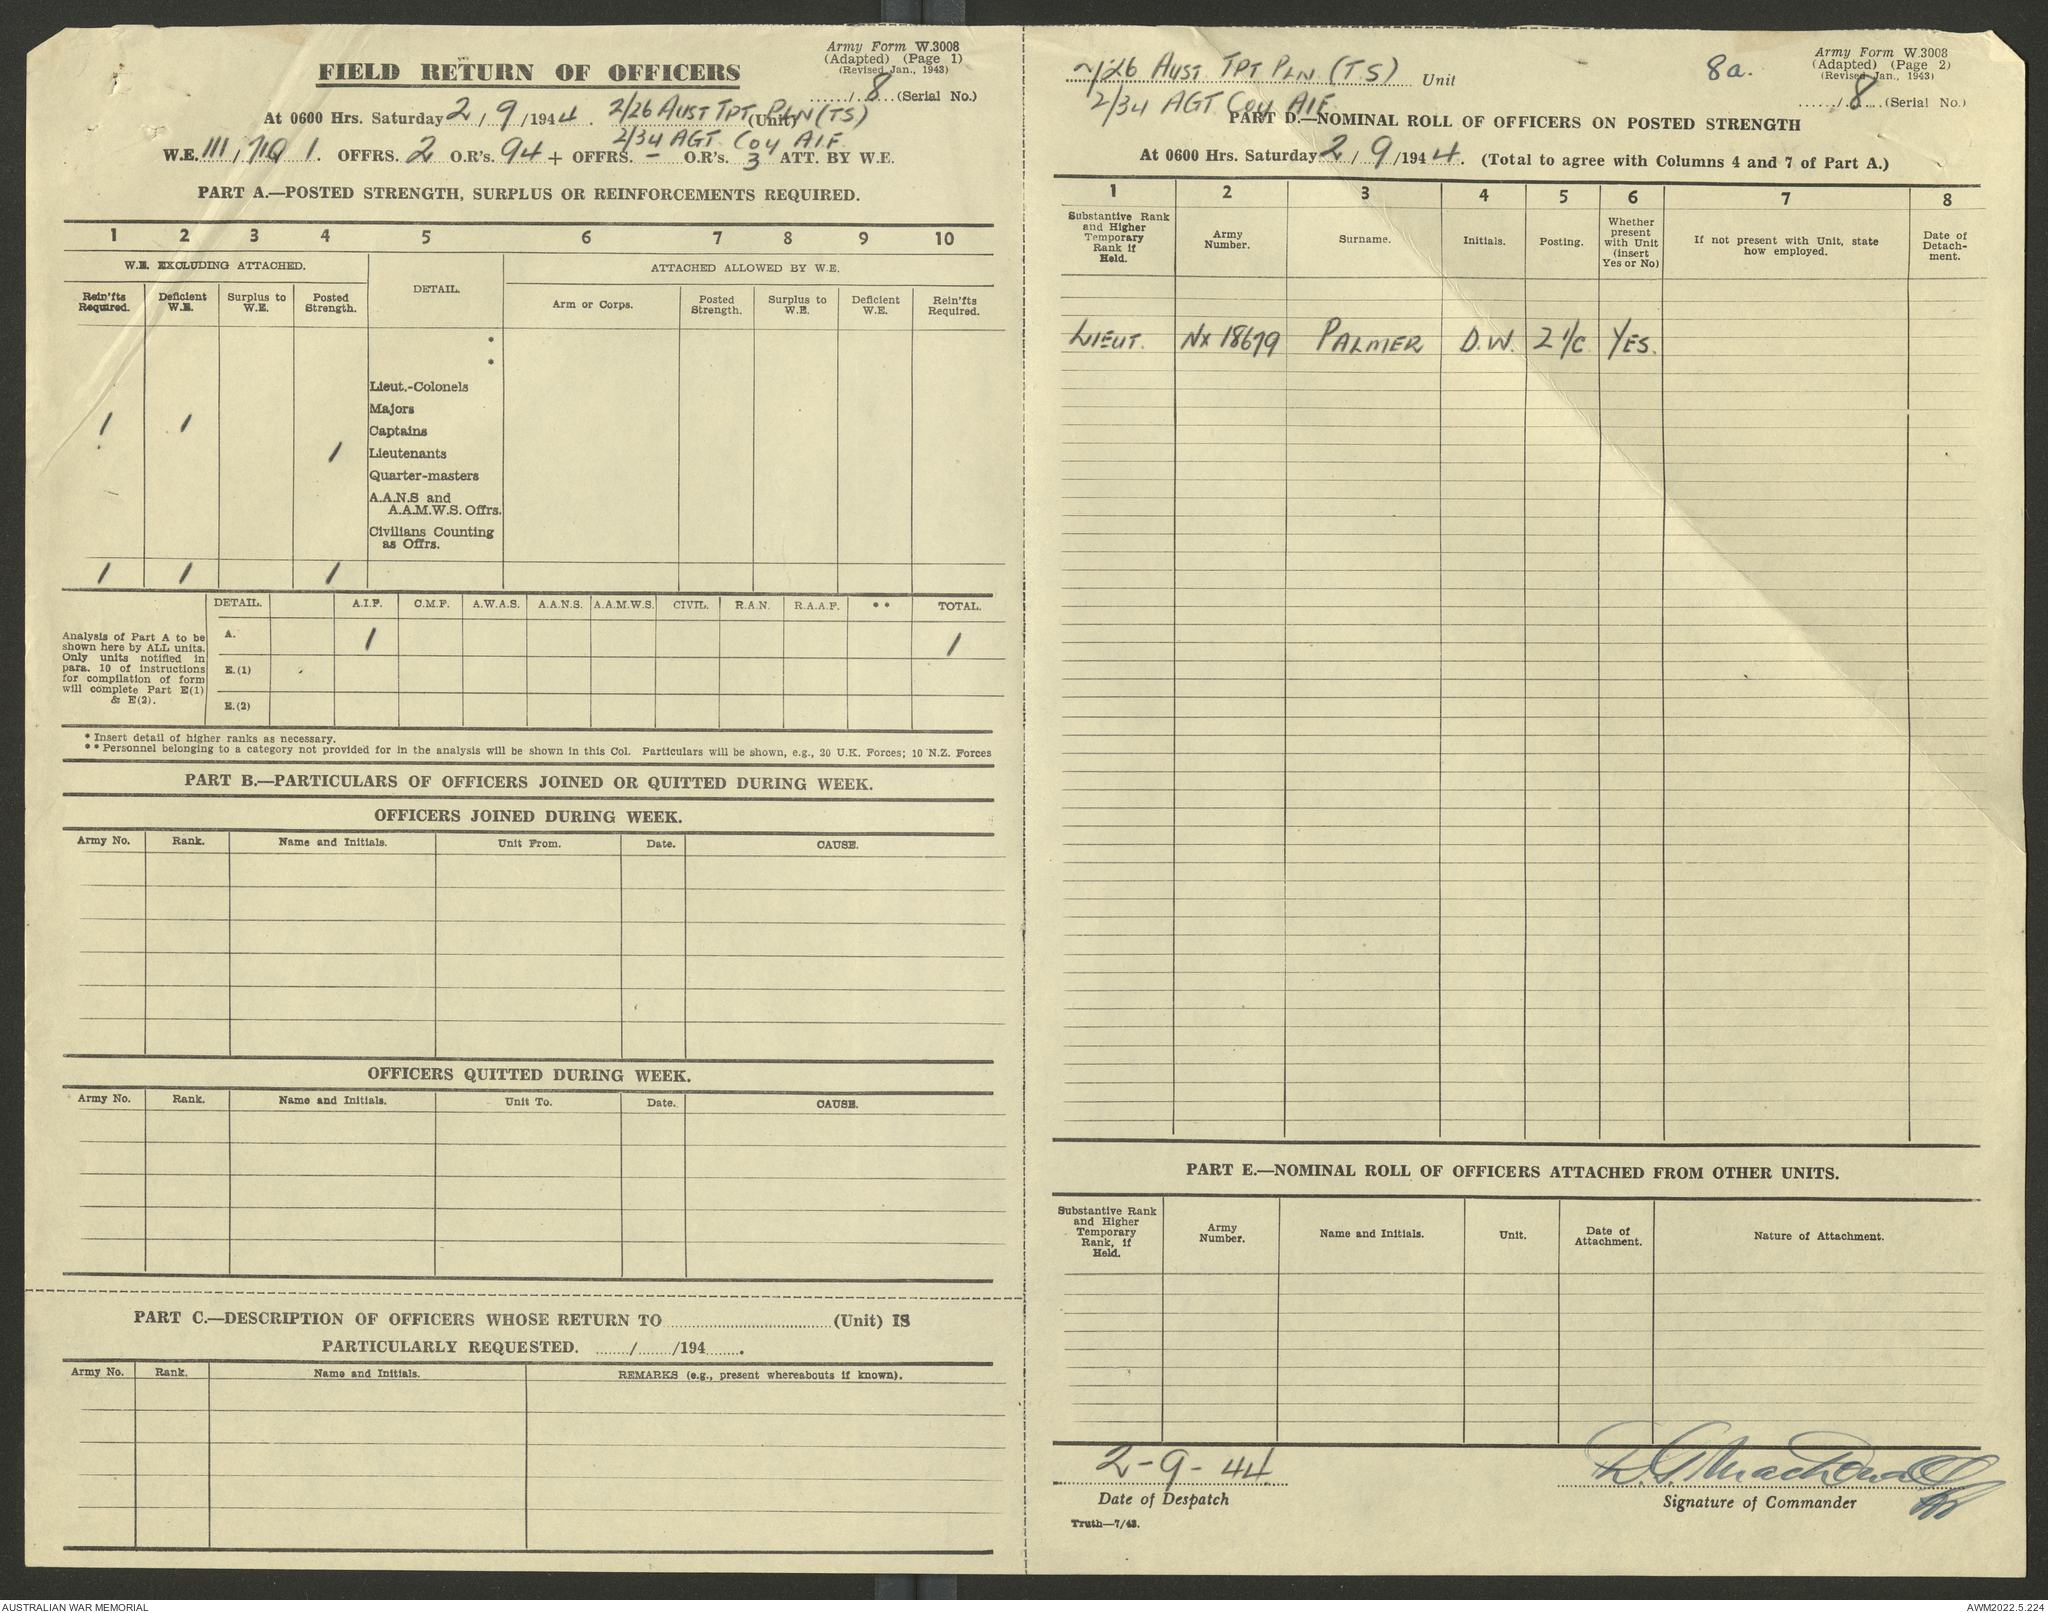 Army Form W.3008
(Adapted) (Page 1)
(Revised Jan., 1943)
FIELD RETURN OF OFFICERS
....../..8....(Serial No.)
At 0600 Hrs. Saturday 2/9/1944. 2/26 AUST TPT PLN (TS) (Unit)
2/34 AGT COY AIF
W.E. OFFRS. 2 O.R's. 94 + OFFRS. – O.R's. 3 ATT. BY W.E.
PART A.—POSTED STRENGTH, SURPLUS OR REINFORCEMENTS REQUIRED.
1 2 3 4 5 6 7 8 9 10
W.E. EXCLUDING ATTACHED. DETAIL. ATTACHED ALLOWED BY W.E.
Rein'fts Required. Deficient W.E. Surplus to W.E. Posted Strength. Arm or Corps. Posted Strength. Surplus to W.E. Deficient W.E. Rein'fts Required.
*
*
Lieut.-Colonels
Majors
1 1 Captains
1 Lieutenants
Quarter-masters
A.A.N.S and
A.A.M.W.S. Offrs.
Civilians Counting
as Offrs.
1 1 1
DETAIL. A.I.F. C.M.F. A.W.A.S. A.A.N.S. A.A.M.W.S. CIVIL. R.A.N. R.A.A.F. ** TOTAL.
Analysis of Part A to be
shown here by ALL units.
Only units notified in
para. 10 of instructions
for compilation of form
will complete Part E(1)
& E(2).
A. 1 1
E.(1)
E.(2)
* Insert detail of higher ranks as necessary.
** Personnel belonging to a category not provided for in the analysis will be shown in this Col. Particulars will be shown, e.g., 20 U.K. Forces; 10 N.Z. Forces
PART B.—PARTICULARS OF OFFICERS JOINED OR QUITTED DURING WEEK.
OFFICERS JOINED DURING WEEK.
Army No. Rank. Name and Initials. Unit From. Date. CAUSE.
OFFICERS QUITTED DURING WEEK.
Army No. Rank. Name and Initials. Unit To. Date. CAUSE.
PART C.—DESCRIPTION OF OFFICERS WHOSE RETURN TO....................(Unit) IS
PARTICULARLY REQUESTED. ......./......./194.......
Army No. Rank. Name and Initials. REMARKS (e.g., present whereabouts if known).
Army Form W.3008
(Adapted) (Page 2)
(Revised Jan., 1943)
2/26 AUST. TPT PLN (TS) Unit 8a.
....../..8....(Serial No.)
2/34 AGT COY AIF
PART D.—NOMINAL ROLL OF OFFICERS ON POSTED STRENGTH
At 0600 Hrs. Saturday 2/9/1944. (Total to agree with Columns 4 and 7 of Part A.)
1 2 3 4 5 6 7 8
Substantive Rank and Higher Temporary Rank if Held. Army Number. Surname. Initials. Posting. Whether present with Unit (insert Yes or No) If not present with Unit, state how employed. Date of Detach-ment.
LIEUT. NX 18679 PALMER D.W. 2 I/C YES.
PART E.—NOMINAL ROLL OF OFFICERS ATTACHED FROM OTHER UNITS.
Substantive Rank and Higher Temporary Rank, if Held. Army Number. Name and Initials. Unit. Date of Attachment. Nature of Attachment.
2-9-44
Date of Despatch
Signature of Commander
Truth—7/43.
AUSTRALIAN WAR MEMORIAL
AWM2022.5.224